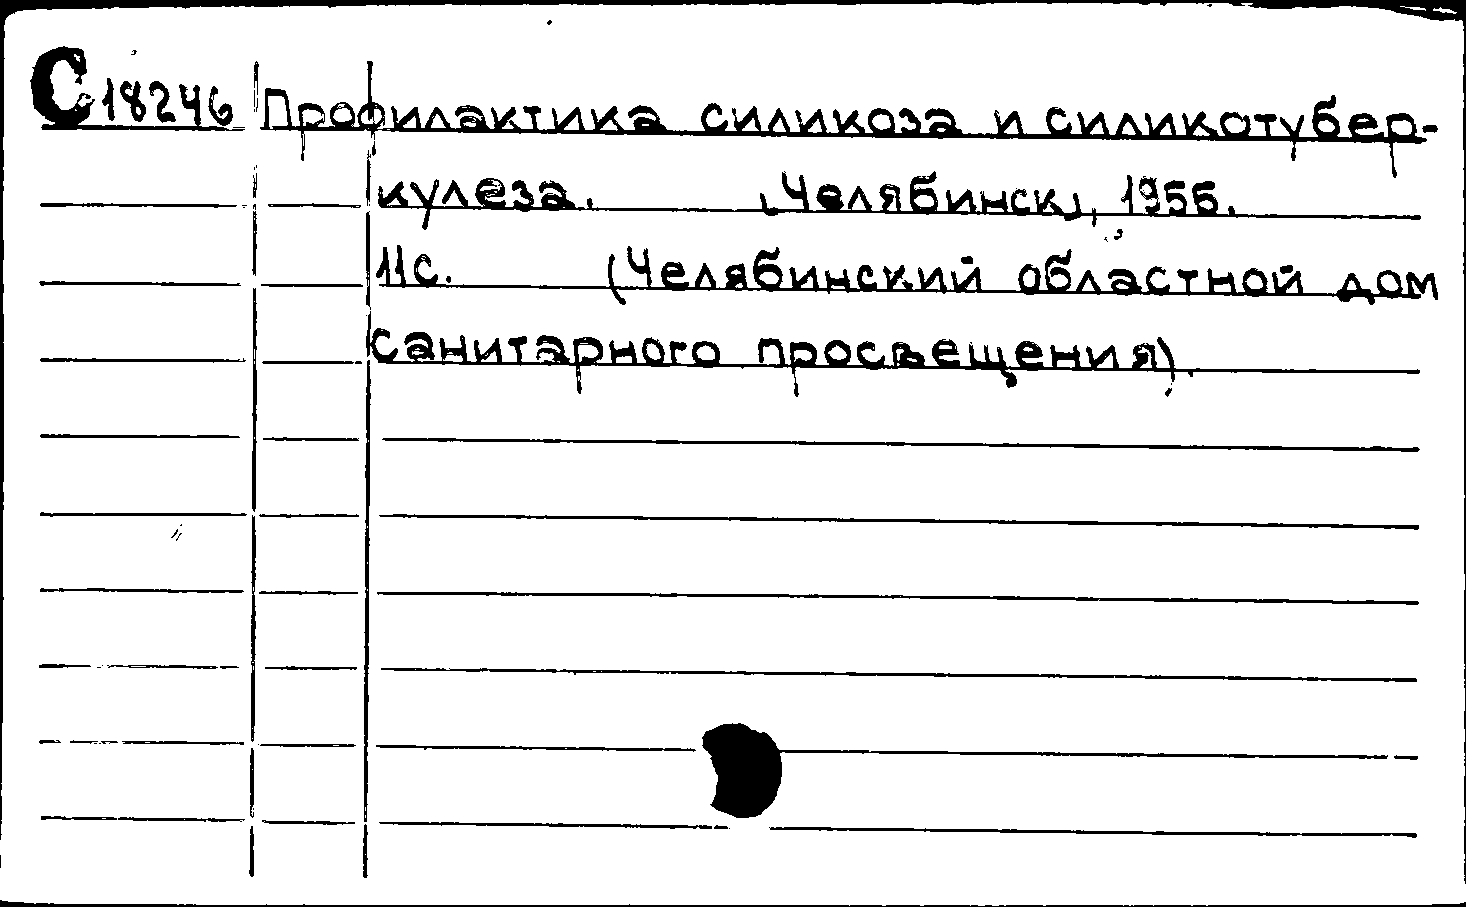 С 18246 Профилактика силикоза и силикотубер-
кулеза. [Челябинск], 1955.
11с. (Челябинский областной дом
санитарного просвещения).